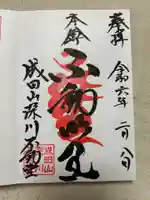 奉拝
令和六年
二月八日
本尊
不動明王
成田山深川不動堂
成田山